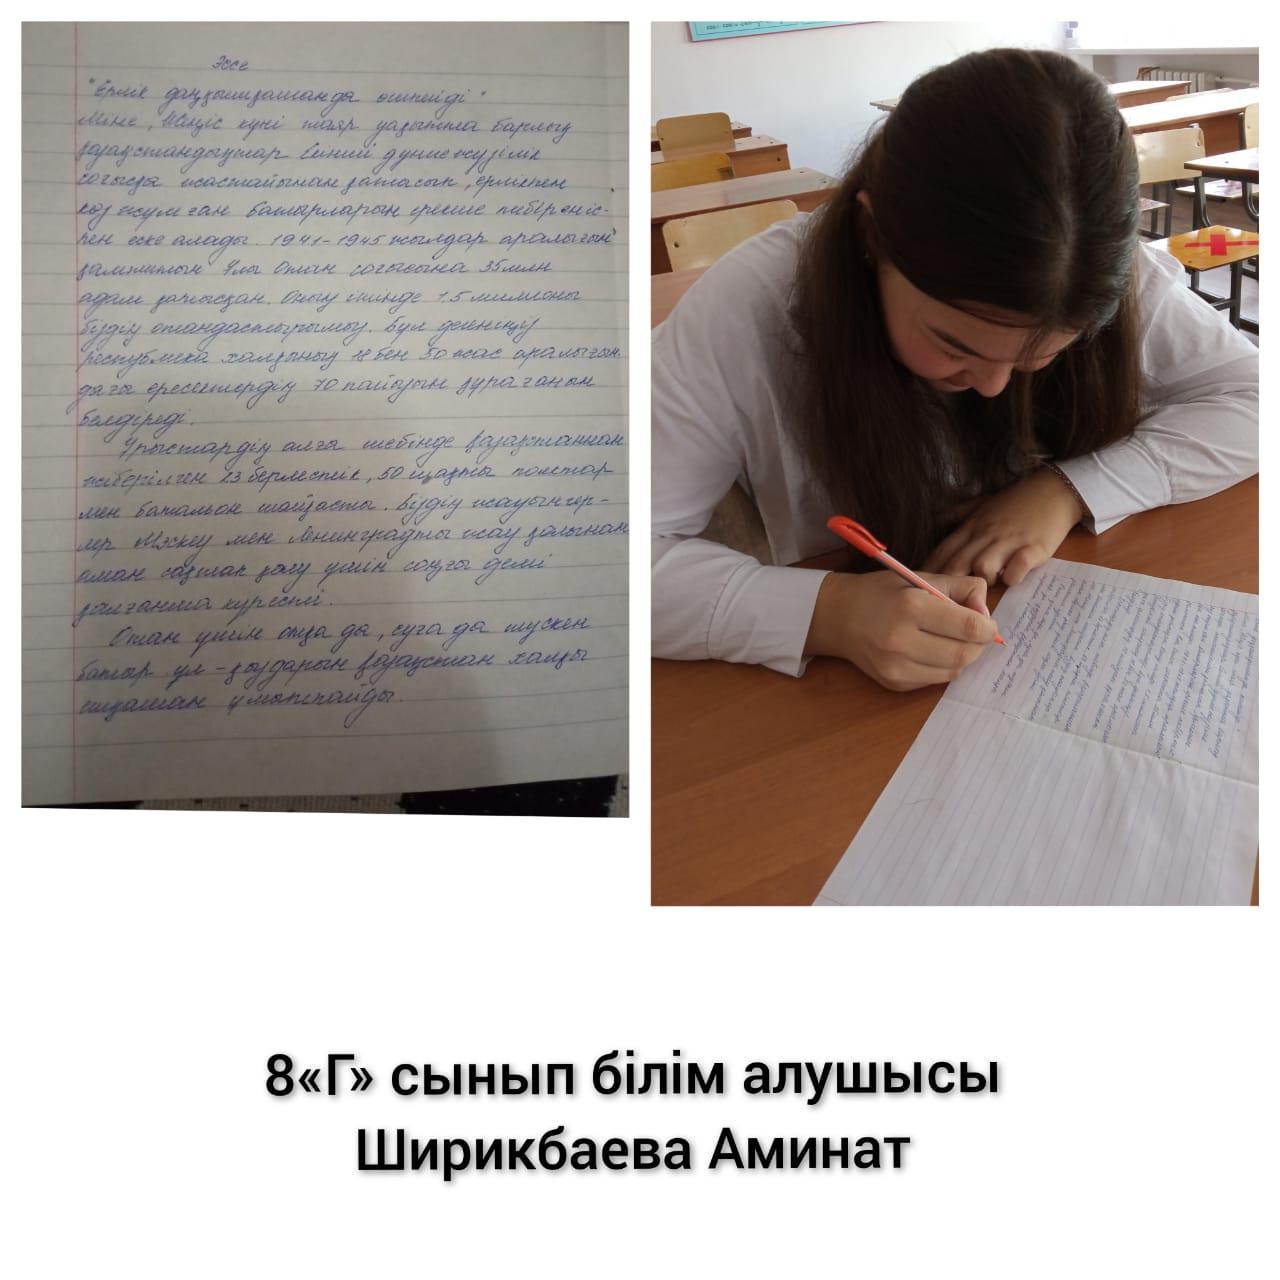 Эссе
"Ерлік даңқы ешқашанда өшпейді"
Міне, Жеңіс күні таяр уақытта барлық
қазақстандықтар Екінші дүниежүзілік
соғысқа жастайынан қатысып, ерлікпен
көз жұмған батырларын ерекше тебіреніс-
пен еске алады. 1941-1945 жылдар аралығын
қамтитын Ұлы Отан соғысына 35 млн
адам қатысқан. Оның ішінде 1,5 миллионы
біздің отандастарымыз. Бұл дегеніңіз
республика халқының 18 бен 50 жас аралығын-
дағы ересектердің 70 пайызын құрағанын
білдіреді.
Ұрыстардың алғы шебінде Қазақстаннан
жіберілген 23 50 полктар
мен батальон шайқасты. Біздің жауынгер-
лер Мәскеу мен Ленинградты жау қолынан
аман сақтап қалу үшін соңғы демі
қалғанша күресті.
Отан үшін отқа да, суға да түскен
батыр ұл-қыздарын Қазақстан халқы
ешқашан ұмытпайды.
8«Г» сынып білім алушысы
Ширикбаева Аминат